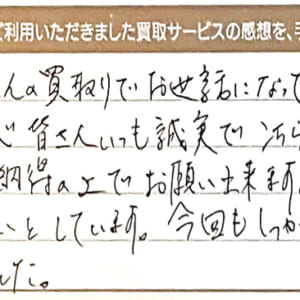 ご利用いただきました買取サービスの感想を、手
んの買取りでお世話になって
皆さんいつも誠実でこちら
納得の上でお願い出来ます
いとしています。今回もしっか
した。